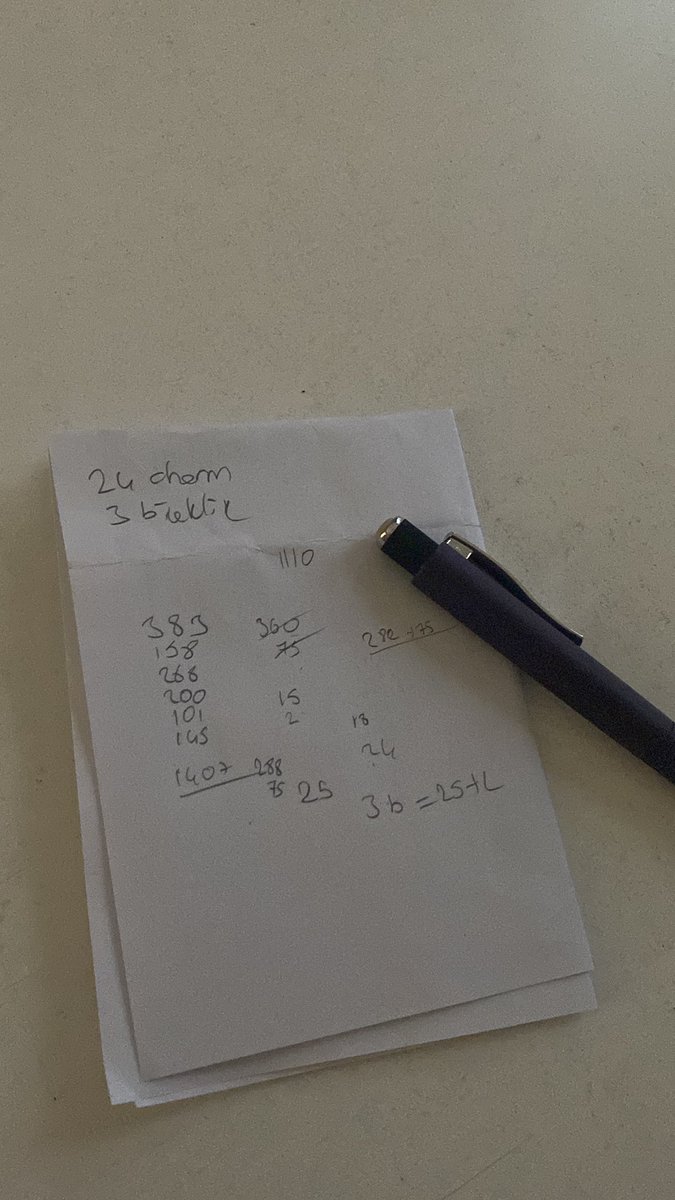 24 charm
3 bileklik
1110
383 360
158 75 282+75
268
200 15
101 2 18
145 24
1407 288
75 25 3b = 25+L